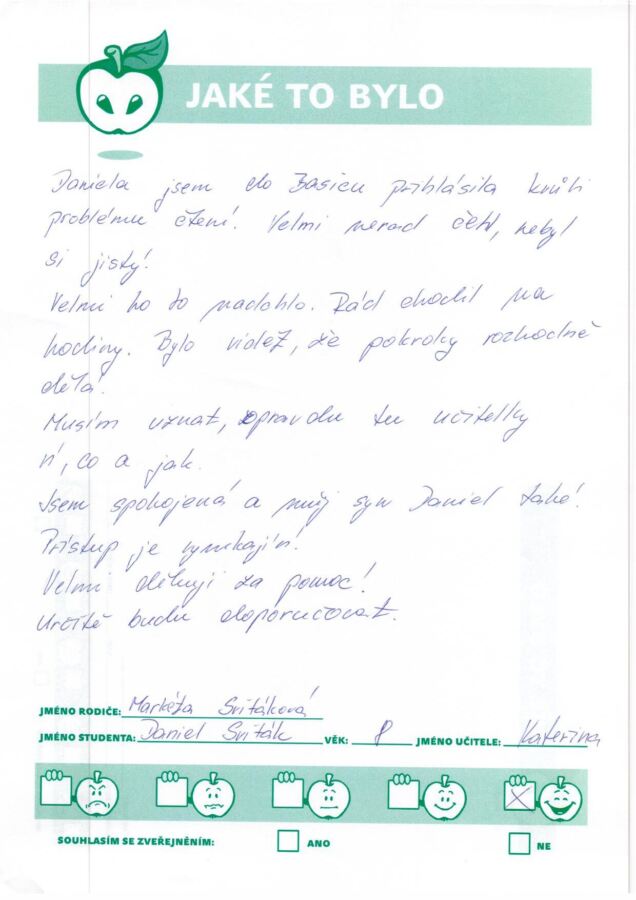 JAKÉ TO BYLO
Daniela jsem do Basicu přihlásila kvůli
problému čtení. Velmi nerad četl, nebyl
si jistý!
Velmi ho to nadchlo. Rád chodil na
hodiny. Bylo vidět, že pokroky rozhodně
dělá!
Musím uznat, opravdu tu učitelky
ví, co a jak.
Jsem spokojená a můj syn Daniel také!
Přístup je vynikající!
Velmi děkuji za pomoc!
Určitě budu doporučovat.
JMÉNO RODIČE: Markéta Sviťáková
JMÉNO STUDENTA: Daniel Sviťák VĚK: 8 JMÉNO UČITELE: Kateřina
SOUHLASÍM SE ZVEŘEJNĚNÍM: ANO NE